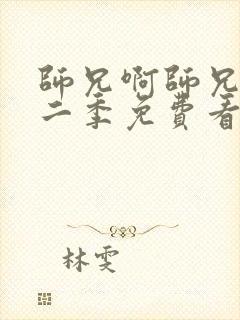 師兄啊師兄
二季免費看
林雯